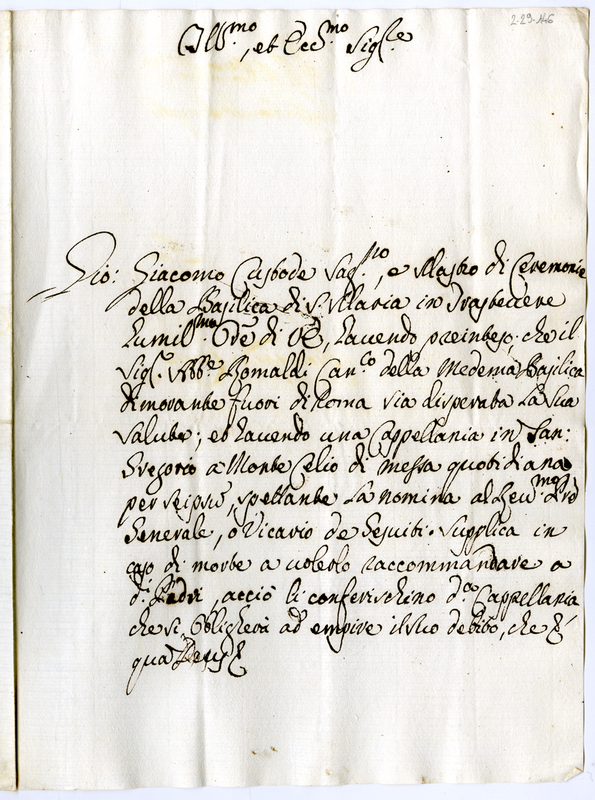 2-29-146
Ill.mo, et Ecc.mo Sig.re
Gio: Giacomo Custode Sag.no, e Mastro di Ceremonie
della Basilica di S. Maria in Trastevere
humil.mo Ore di VE, havendo preinteso, che il
Sig.r Abb.e Romaldi Can.co della Medema Basilica
dimorante fuori di Roma sia disperata la sua
salute; et havendo una Cappellania in San:
Gregorio a Monte Celio di messa quotidiana
per seipsũ, spettante la nomina al Reu.mo Prẽ
Generale, o Vicario de Gesuiti. Supplica in
caso di morte a volerlo raccommandare a
d.i Padri, acciò li conferischino d.a Cappellania
che si obligherà ad empire il suo debito, che
qua Deus